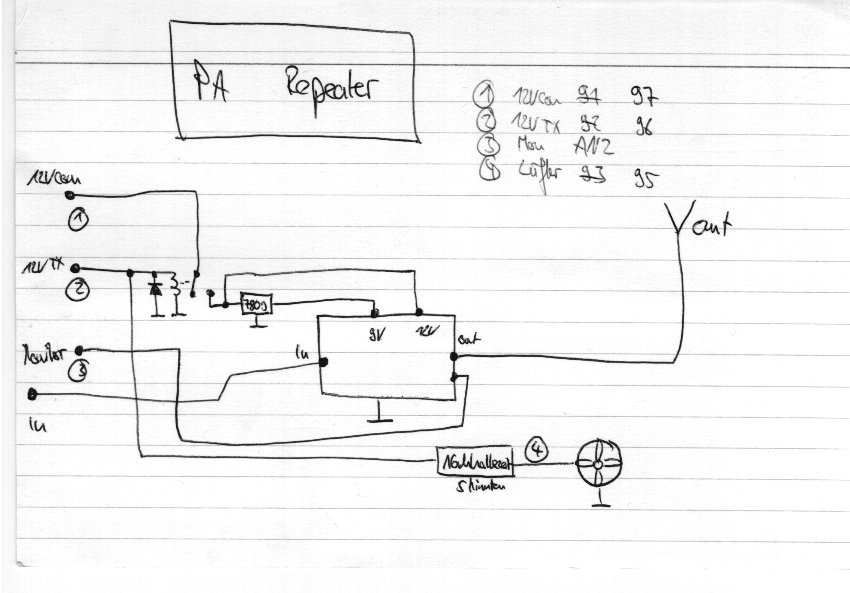 PA Repeater
① 12V Con 91 97
② 12V TX 92 96
③ Mon AN2
④ Lüfter 93 95
12V Con
①
ant
12V TX
②
7809
9V 12V
out
Monitor
③
in
in
④
Nachhallezeit
5 Minuten